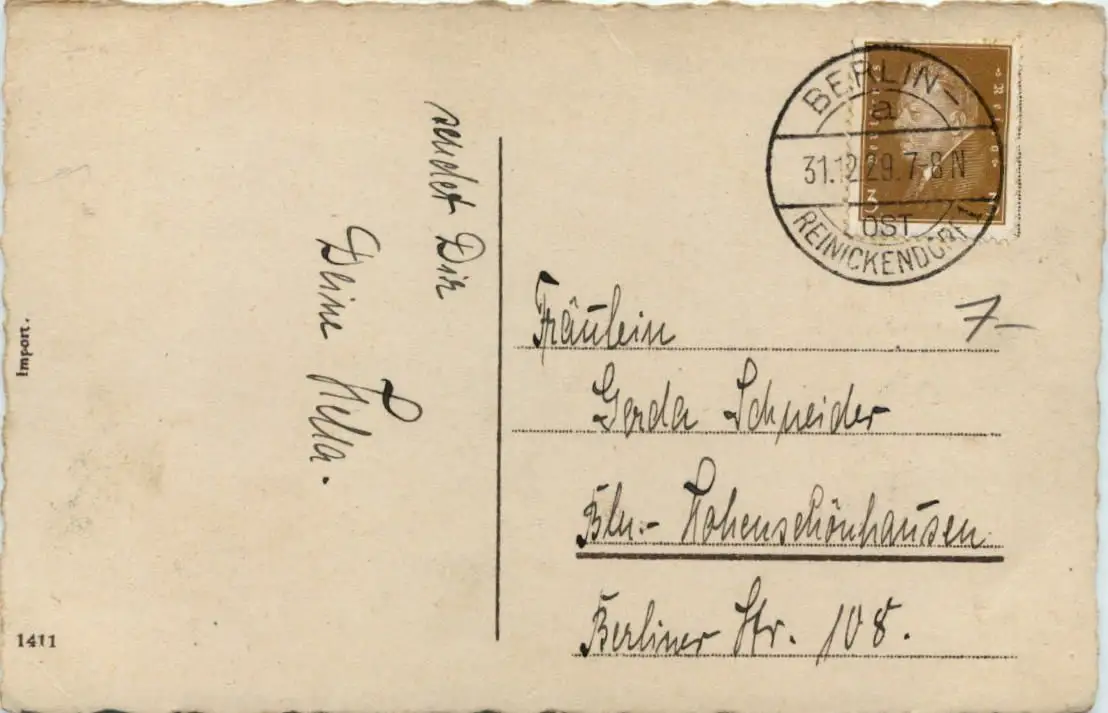 sendet Dir
Deine Hella.
BERLIN-
a
31.12.29.7-8N
OST
REINICKENDORF
3
7-
Fräulein
Gerda Schneider
Bln.- Hohenschönhausen
Berliner Str. 108.
Import.
1411